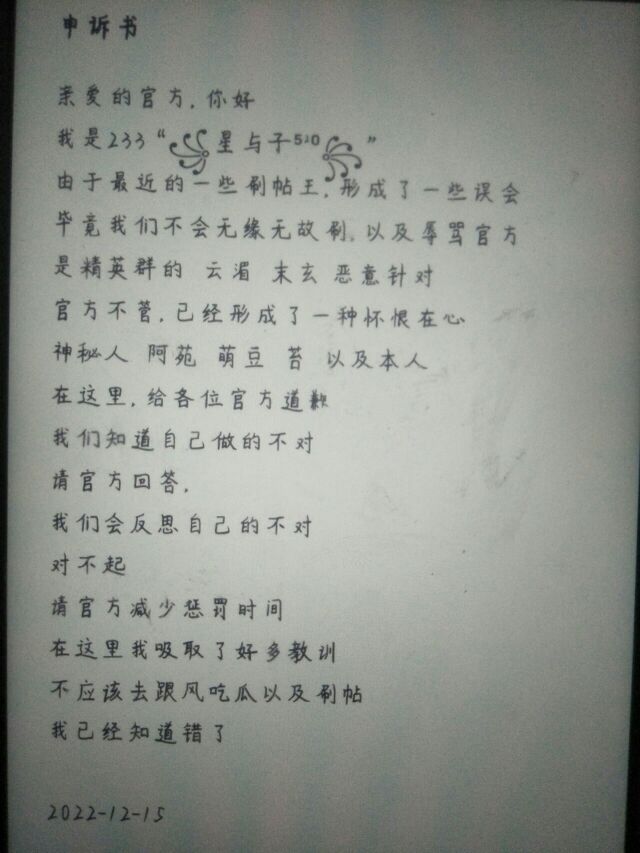 申诉书
亲爱的官方，你好
我是233“꧁星与子⁵²⁰꧂”
由于最近的一些刷帖王，形成了一些误会
毕竟我们不会无缘无故刷，以及辱骂官方
是精英群的 云湄 末玄 恶意针对
官方不管，已经形成了一种怀恨在心
神秘人 阿苑 萌豆 苔 以及本人
在这里，给各位官方道歉
我们知道自己做的不对
请官方回答，
我们会反思自己的不对
对不起
请官方减少惩罚时间
在这里我吸取了好多教训
不应该去跟风吃瓜以及刷帖
我已经知道错了
2022-12-15